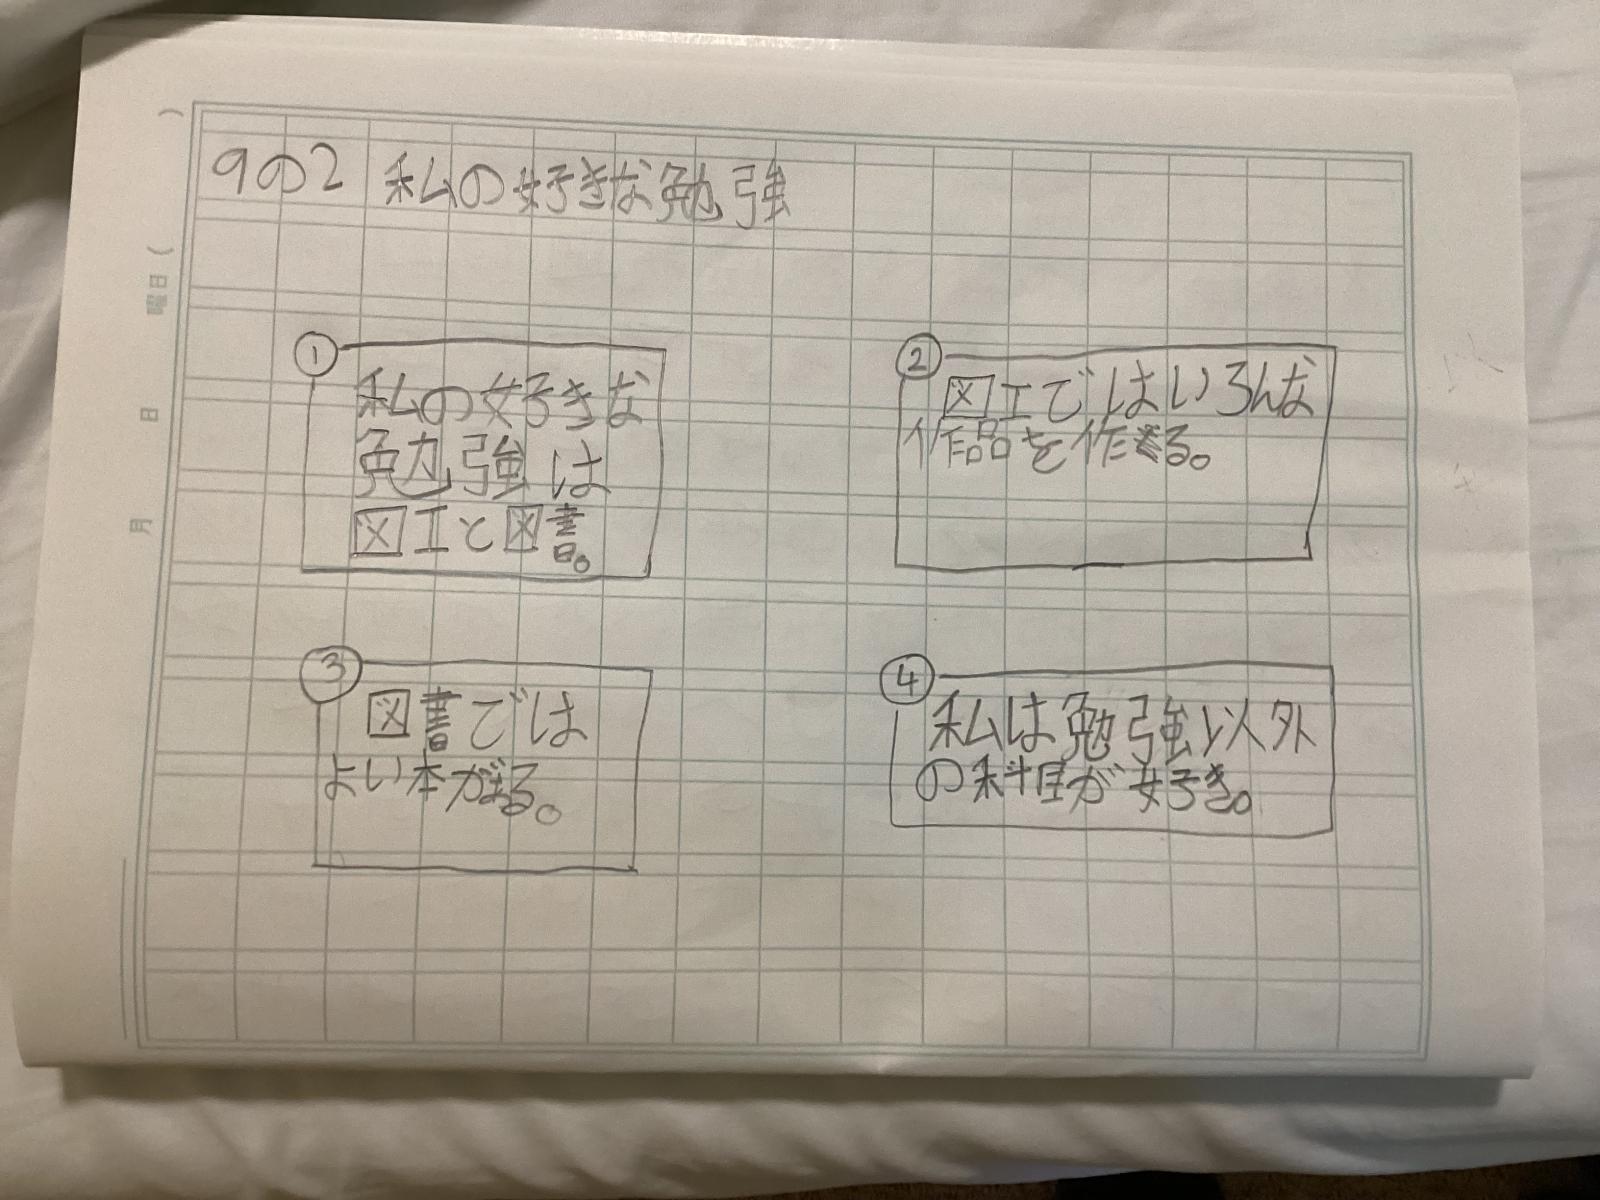 9の2 私の好きな勉強
①
私の好きな
勉強は
図工と図書。
②
図工ではいろんな
作品を作る。
③
図書では
よい本がある。
④
私は勉強以外
の科目が好き。
月 日 曜日( )